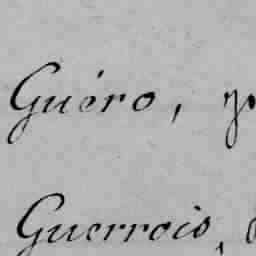 Guéro,
Guerrois,